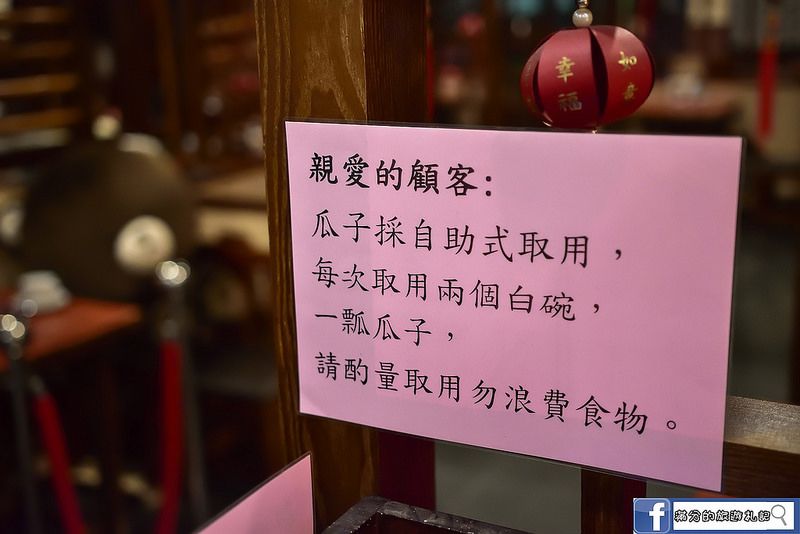 幸福
如意
親愛的顧客:
瓜子採自助式取用，
每次取用兩個白碗，
一瓢瓜子，
請酌量取用勿浪費食物。
f 滿分的旅遊札記